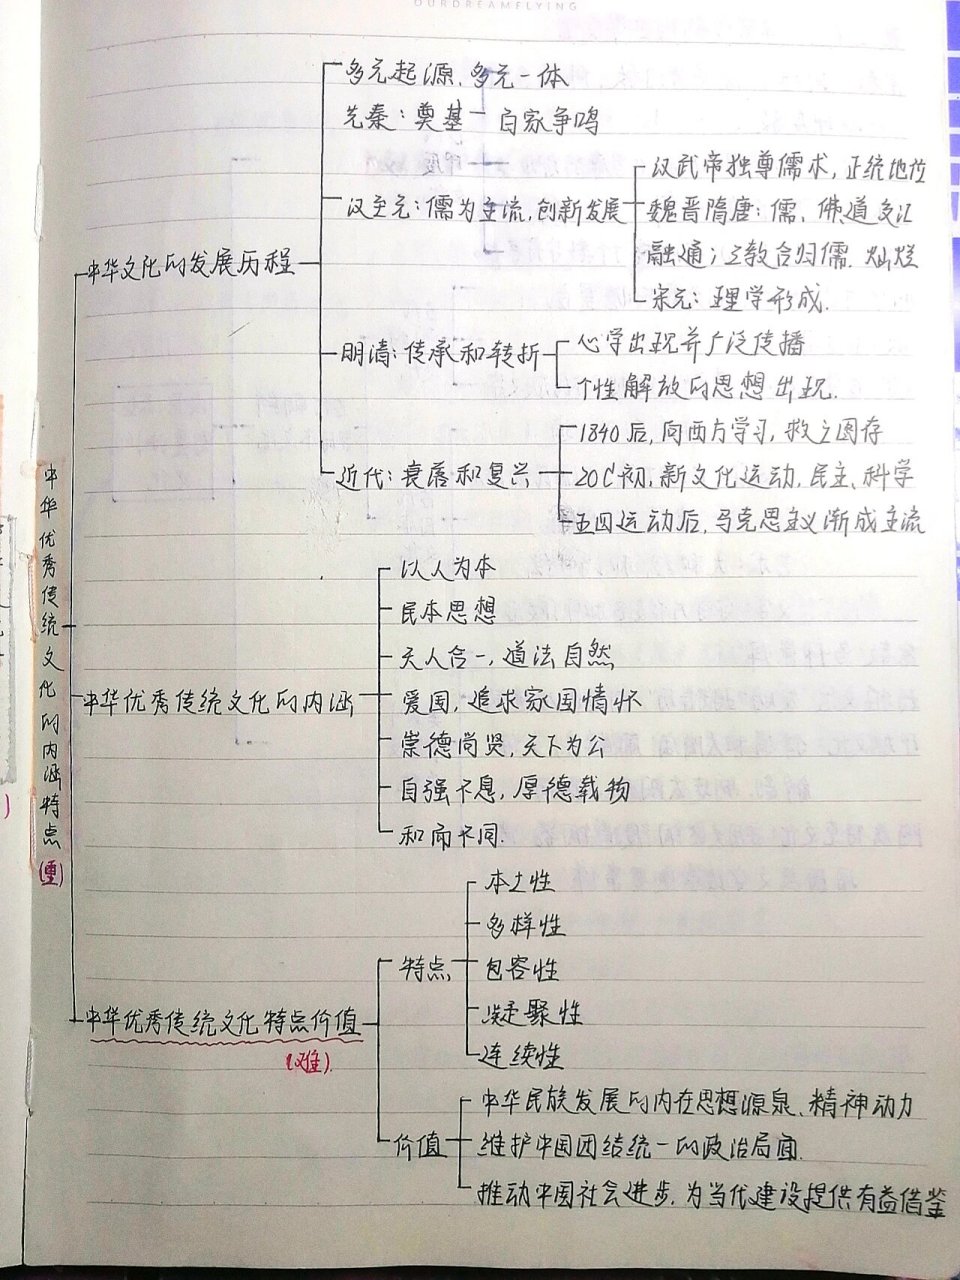 OURDREAMFLYING
中华优秀传统文化的内涵特点
(重)
中华文化的发展历程
多元起源、多元一体
先秦：奠基 — 百家争鸣
汉至元：儒为主流，创新发展
汉武帝独尊儒术，正统地位
魏晋隋唐：儒、佛道交汇
融通；三教合归儒. 灿烂
宋元：理学形成.
明清：传承和转折
心学出现并广泛传播
个性解放的思想出现.
近代：衰落和复兴
1840后，向西方学习，救亡图存
20C初，新文化运动，民主、科学
五四运动后，马克思主义渐成主流
中华优秀传统文化的内涵
以人为本
民本思想
天人合一，道法自然
爱国，追求家国情怀
崇德尚贤，天下为公
自强不息，厚德载物
和而不同.
中华优秀传统文化特点价值
(难).
特点
本土性
多样性
包容性
凝聚性
连续性
价值
中华民族发展的内在思想源泉、精神动力
维护中国团结统一的政治局面.
推动中国社会进步，为当代建设提供有益借鉴